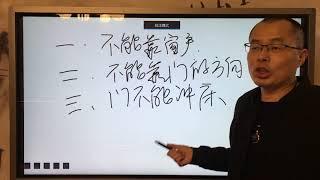 一、不能靠窗户
二、不能靠门的方向
三、门不能冲床、